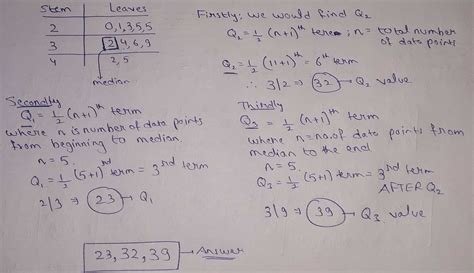 Stem | Leaves
2 | 0,1,3,5,5
3 | 2 4,6,9
4 | 2,5
median
Firstly; we would find Q₂
Q₂ = 1/2 (n+1)ᵗʰ term; n = total number of data points
Q₂ = 1/2 (11+1)ᵗʰ = 6ᵗʰ term
∴ 3|2 ⇒ 32 → Q₂ value
Secondly
Q₁ = 1/2 (n+1)ᵗʰ term
where n is number of data points
from beginning to median.
n = 5.
Q₁ = 1/2 (5+1)ʳᵈ term = 3ʳᵈ term
2|3 ⇒ 23 → Q₁
Thirdly
Q₃ = 1/2 (n+1)ᵗʰ term
where n = no. of data points from
median to the end
n = 5.
Q₃ = 1/2 (5+1)ʳᵈ term = 3ʳᵈ term
AFTER Q₂
3|9 ⇒ 39 → Q₃ value
23, 32, 39 → Answer